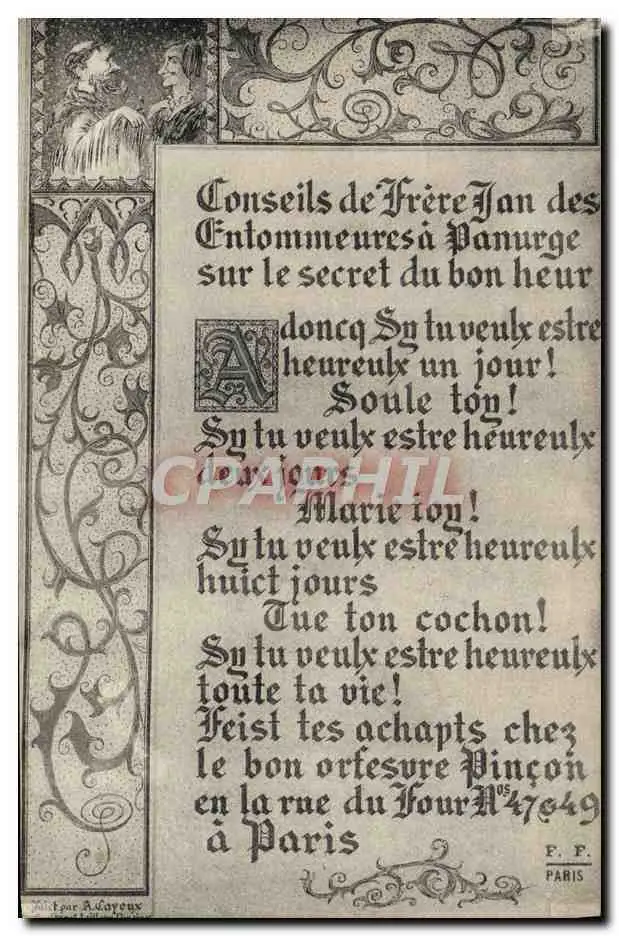 Conseils de Frère Jan des
Entommeures à Panurge
sur le secret du bon heur
Adoncq Sy tu veulx estre
heureulx un jour!
Soule toy!
Sy tu veulx estre heureulx
deux jours
Marie toy!
Sy tu veulx estre heureulx
huict jours
Tue ton cochon!
Sy tu veulx estre heureulx
toute ta vie!
Feist tes achapts chez
le bon orfesvre Pinçon
en la rue du Four Nos 47 & 49
à Paris
F. F.
PARIS
par A. Cayeux
CPAPHIL